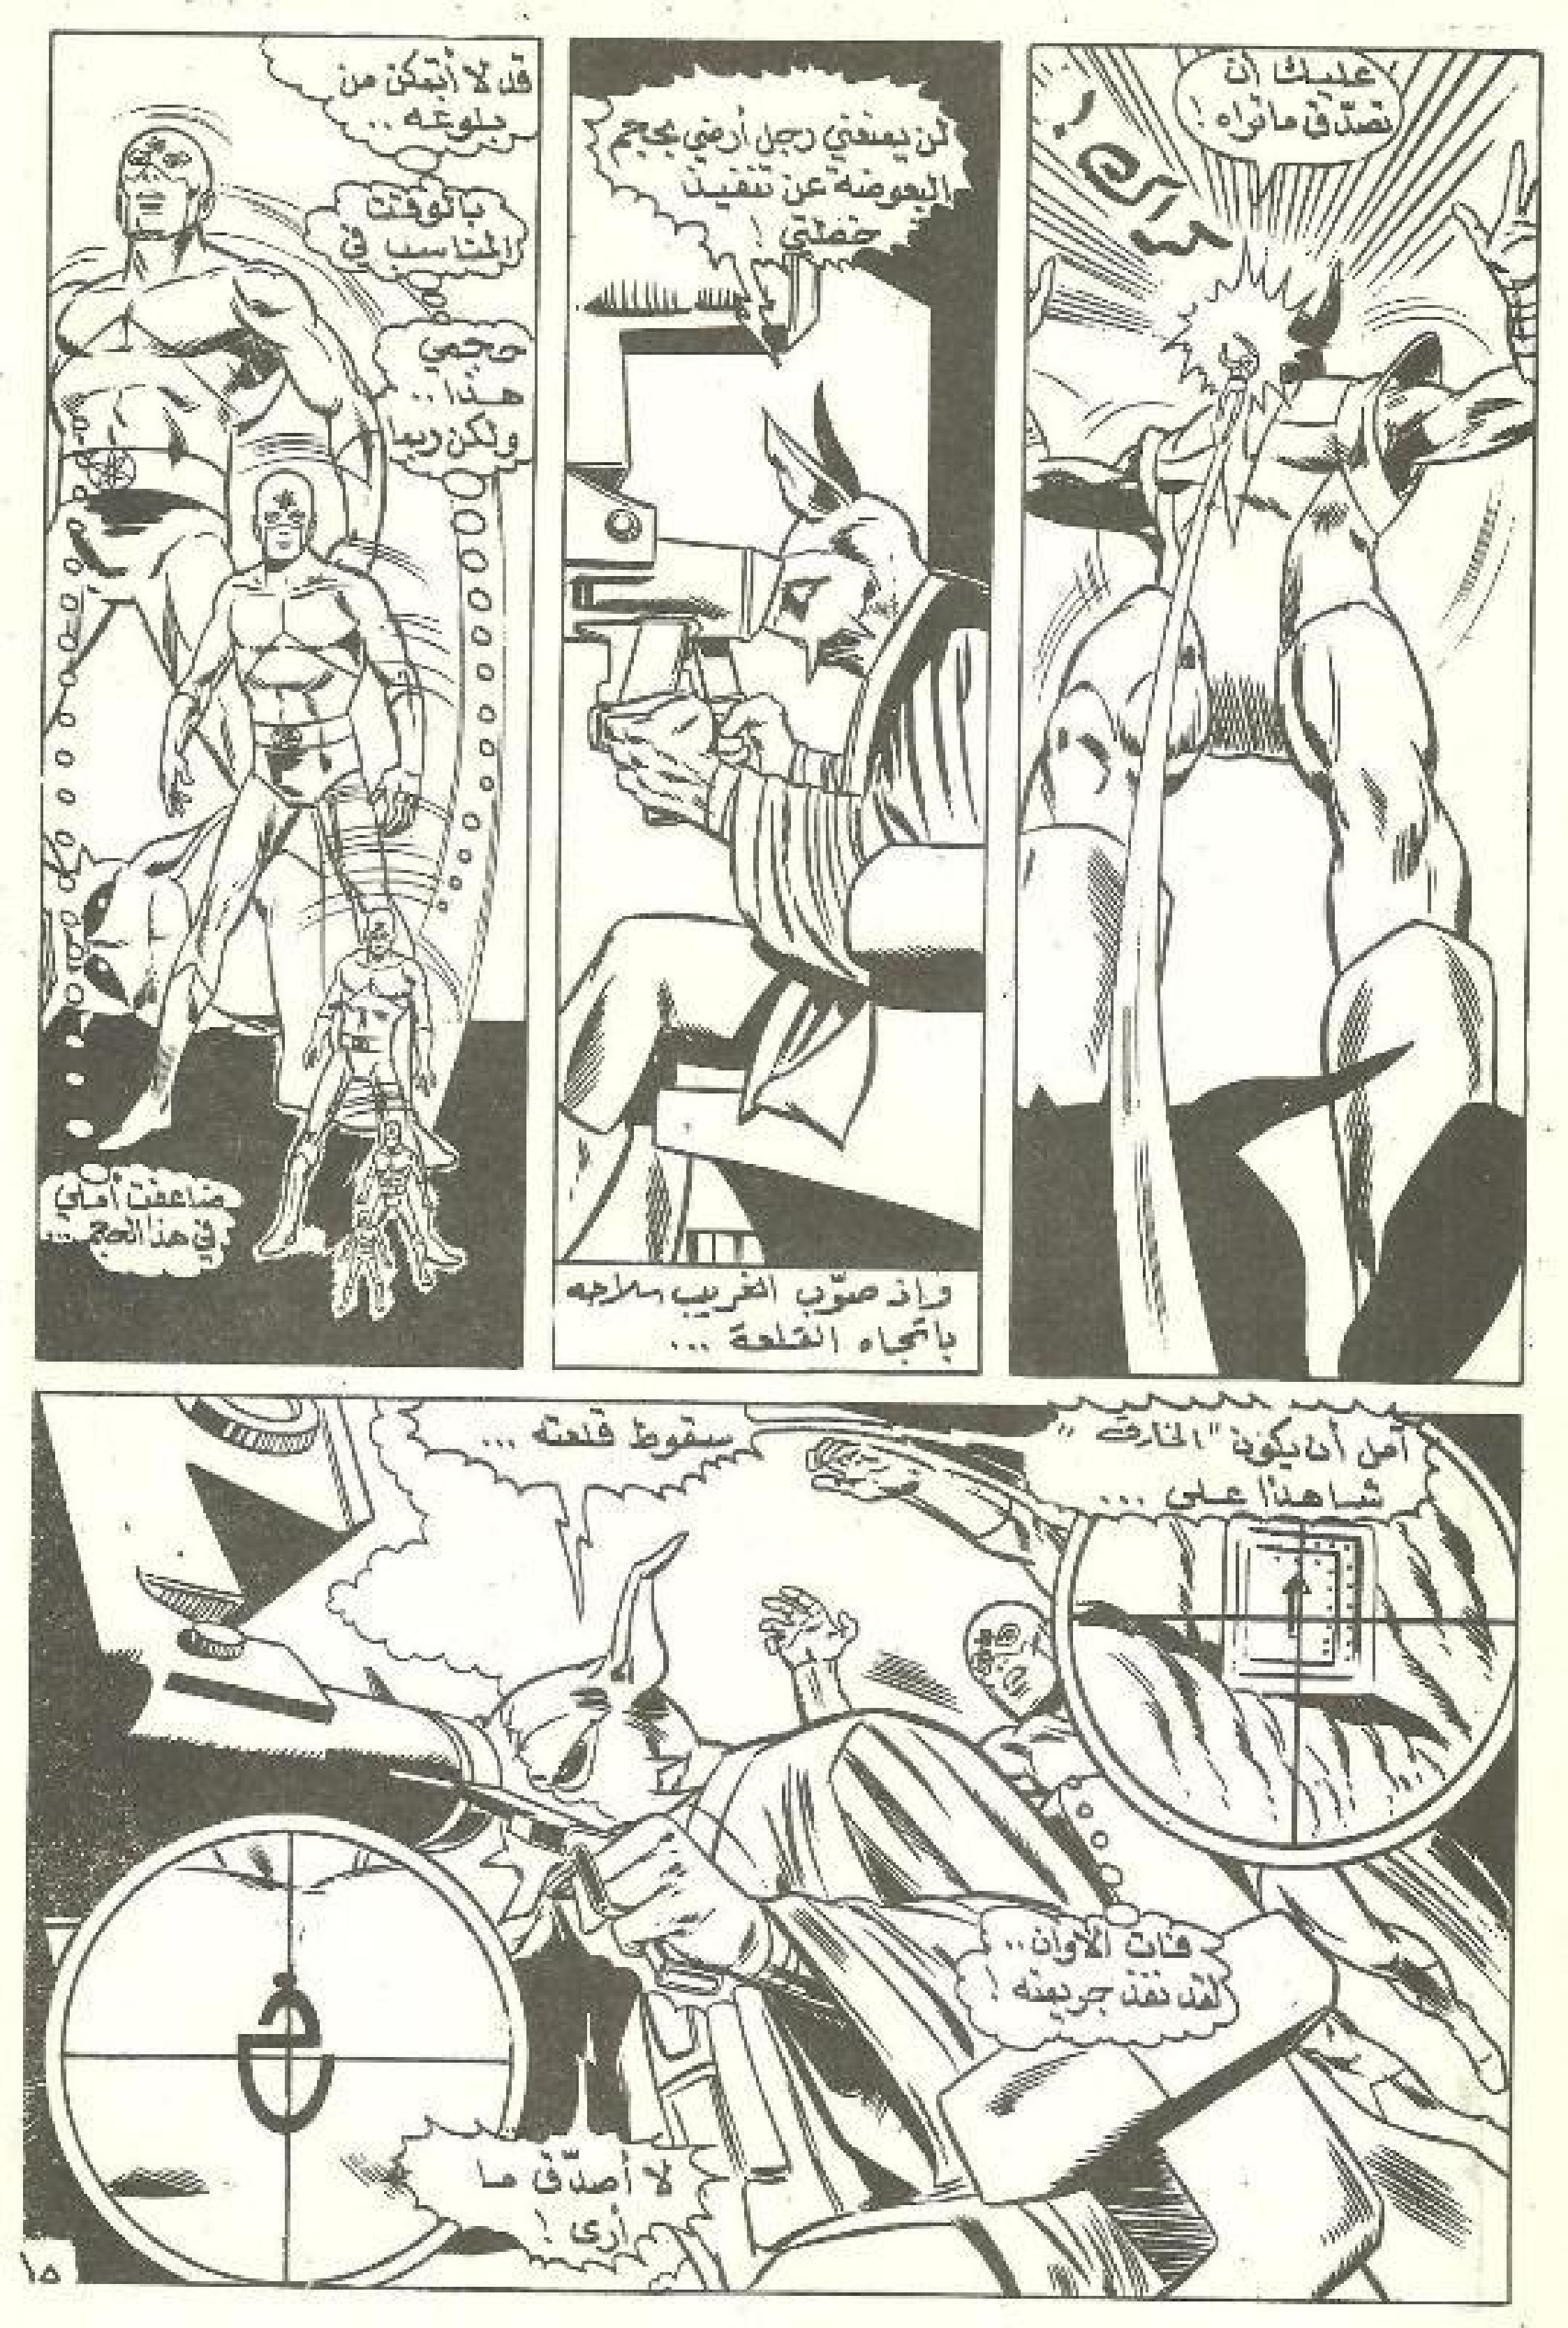 عليك أن
تصدّق ما تراه !
لن يمنعني رجل أرضي بحجم
البعوضة عن تنفيذ
خطتي !
وإذ صوّب الغريب سلاحه
باتجاه القلعة ...
قد لا أتمكن من
بلوغه ..
بالوقت
المناسب في
حجمي
هذا ..
ولكن ربما
ضاعفت أملي
في هذا الحجم ...
آمل أن يكون "الخارق"
شاهدًا على ...
سقوط قلعته ...
فات الأوان ..
لقد نفّذ جريمته !
خ
لا أصدّق ما
أرى !
١٥